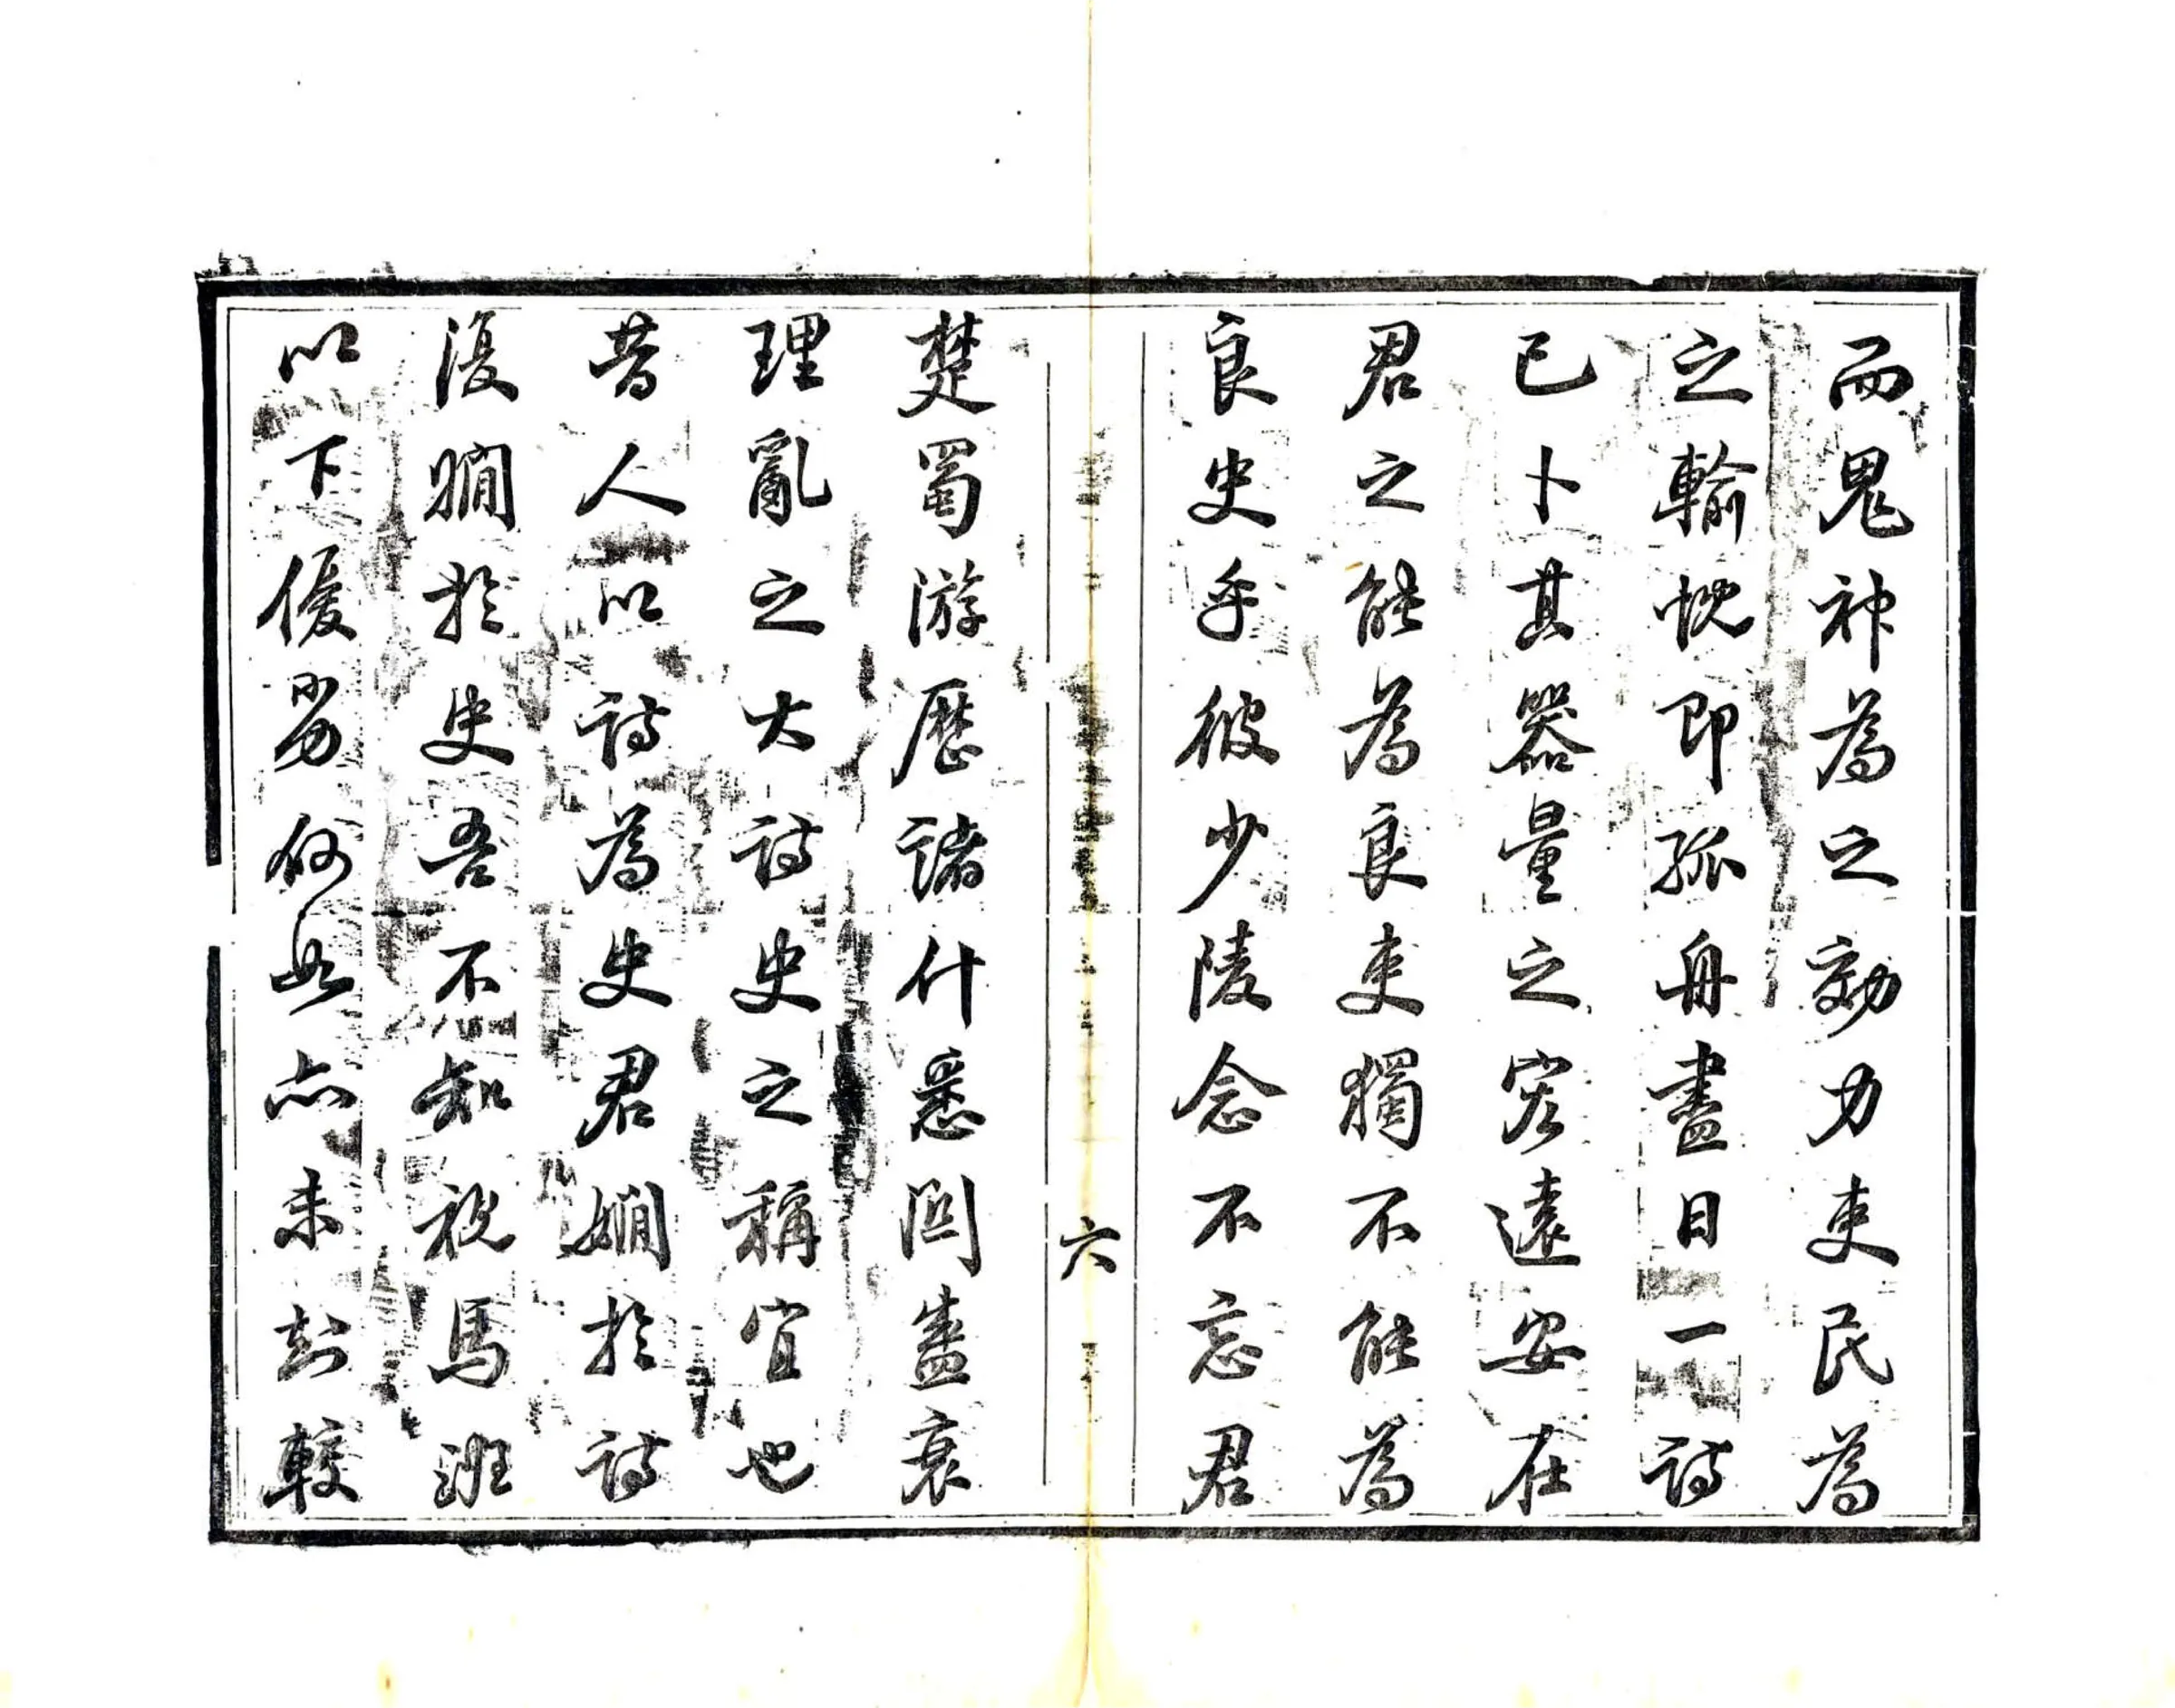 而鬼神為之効力吏民為
之輸忱即孤舟盡日一詩
已卜其器量之宏遠安在
君之能為良吏獨不能為
良史乎彼少陵念不忘君
六
楚蜀游歷諸什悉關盛衰
理亂之大詩史之稱宜也
昔人以詩為史君嫺於詩
復瞯於史吾不知視馬班
以下優劣何如亦未敢較